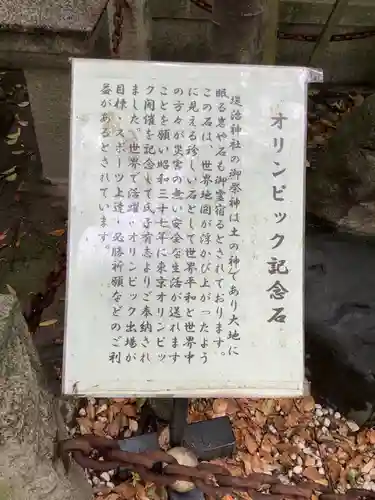 オリンピック記念石
堤治神社の御祭神は土の神であり大地に
眠る恵や石も御霊宿るとされております。
この石は、世界地図が浮かび上がったよう
に見える珍しい石として平和と世界中
の方々が災害の無い安全な生活が送れます
ことを願い昭和三十七年に東京オリンピッ
ク開催を記念して氏子有志よりご奉納され
ました。「世界で活躍・オリンピック出場が
目標・スポーツ上達・必勝祈願などのご利
益があるとされています。